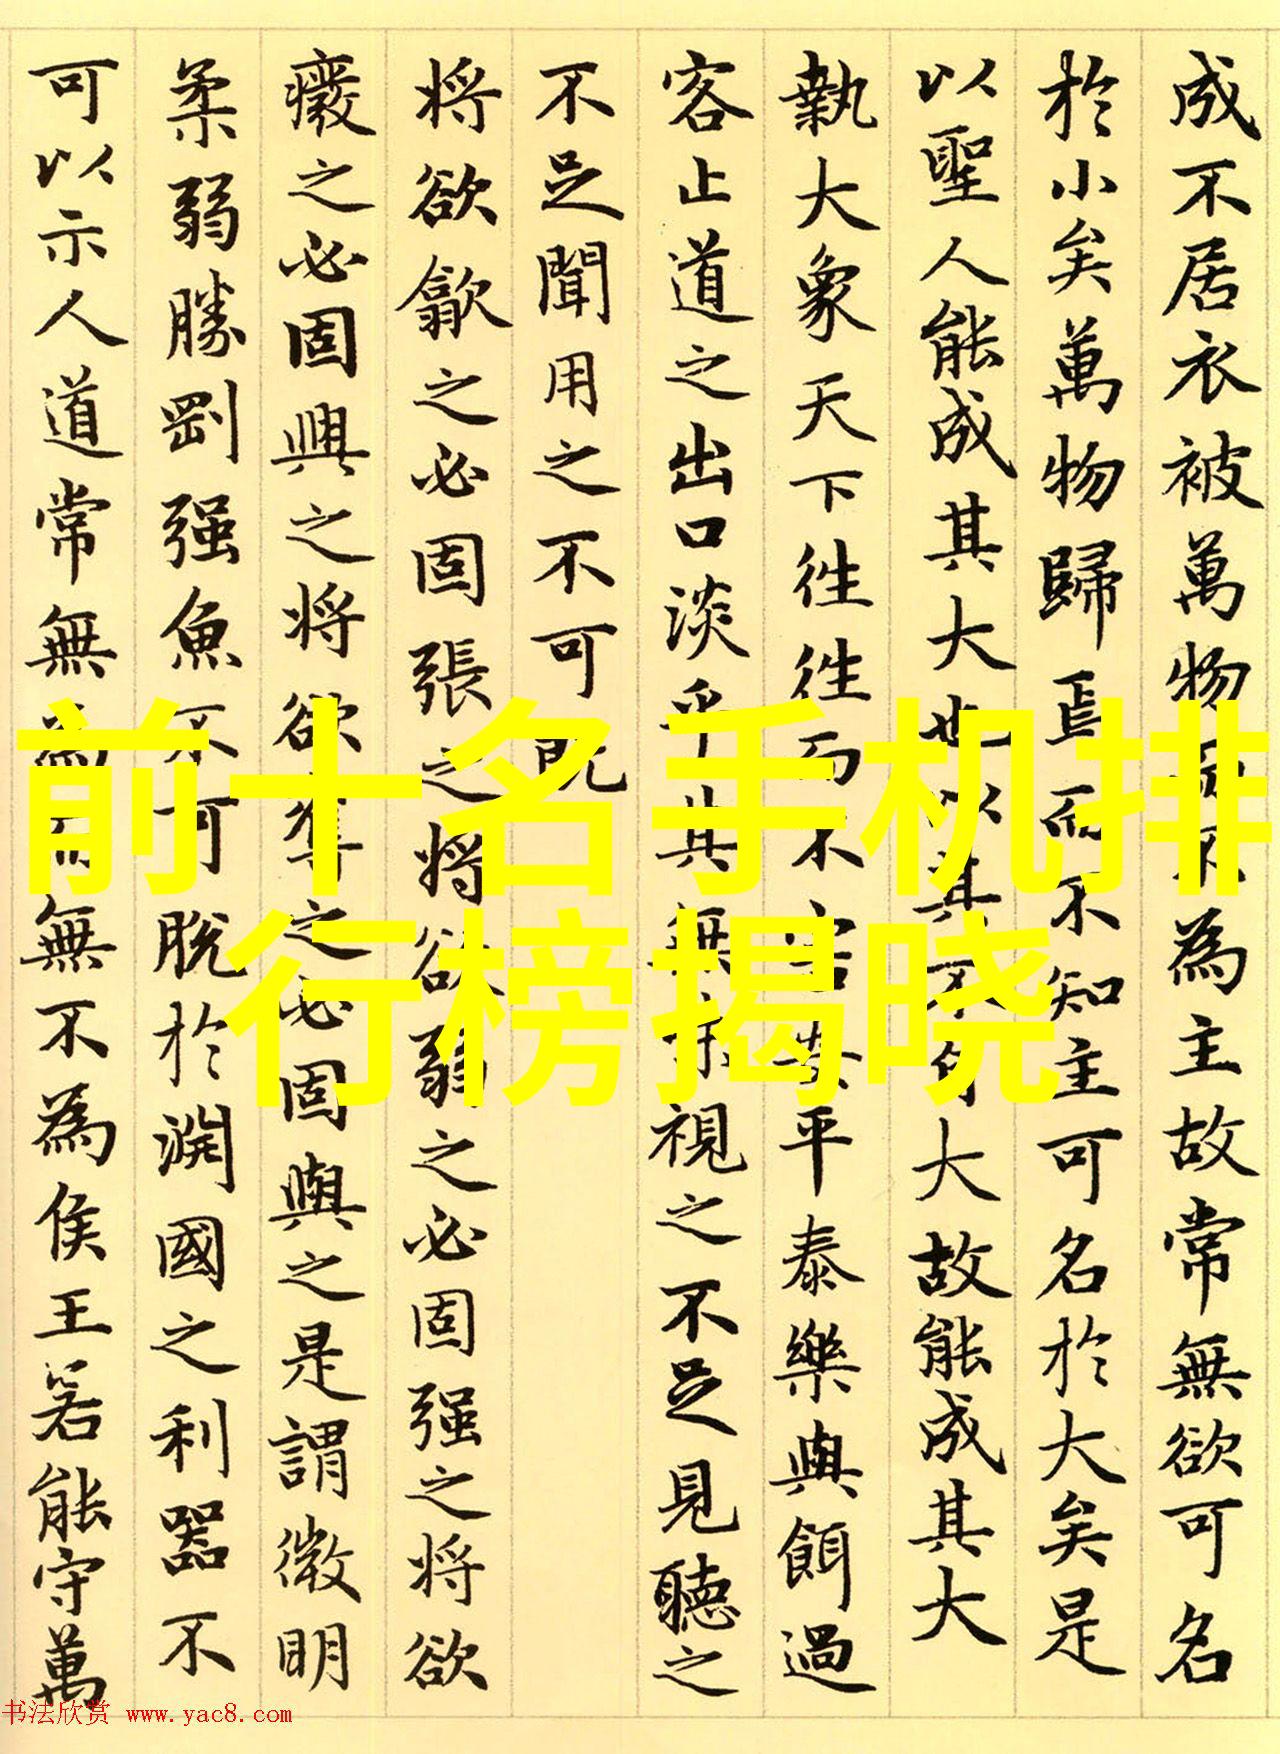 成不居衣被萬物而不為主故常無欲可名
於小矣萬物歸焉而不知主可名於大矣是
以聖人能成其大也以其不自大故能成其大
執大象天下徃徃而不害安平泰樂與餌過
客止道之出口淡乎其無味視之不足見聽之
不足聞用之不可既
将欲歙之必固張之将欲弱之必固强之将欲
癈之必固興之将欲奪之必固與之是謂微明
柔弱勝剛强魚不可脫於淵國之利器不
可以示人道常無為而無不為侯王若能守萬
前十名手机排
行榜揭晓
书法欣赏 www.yac8.com